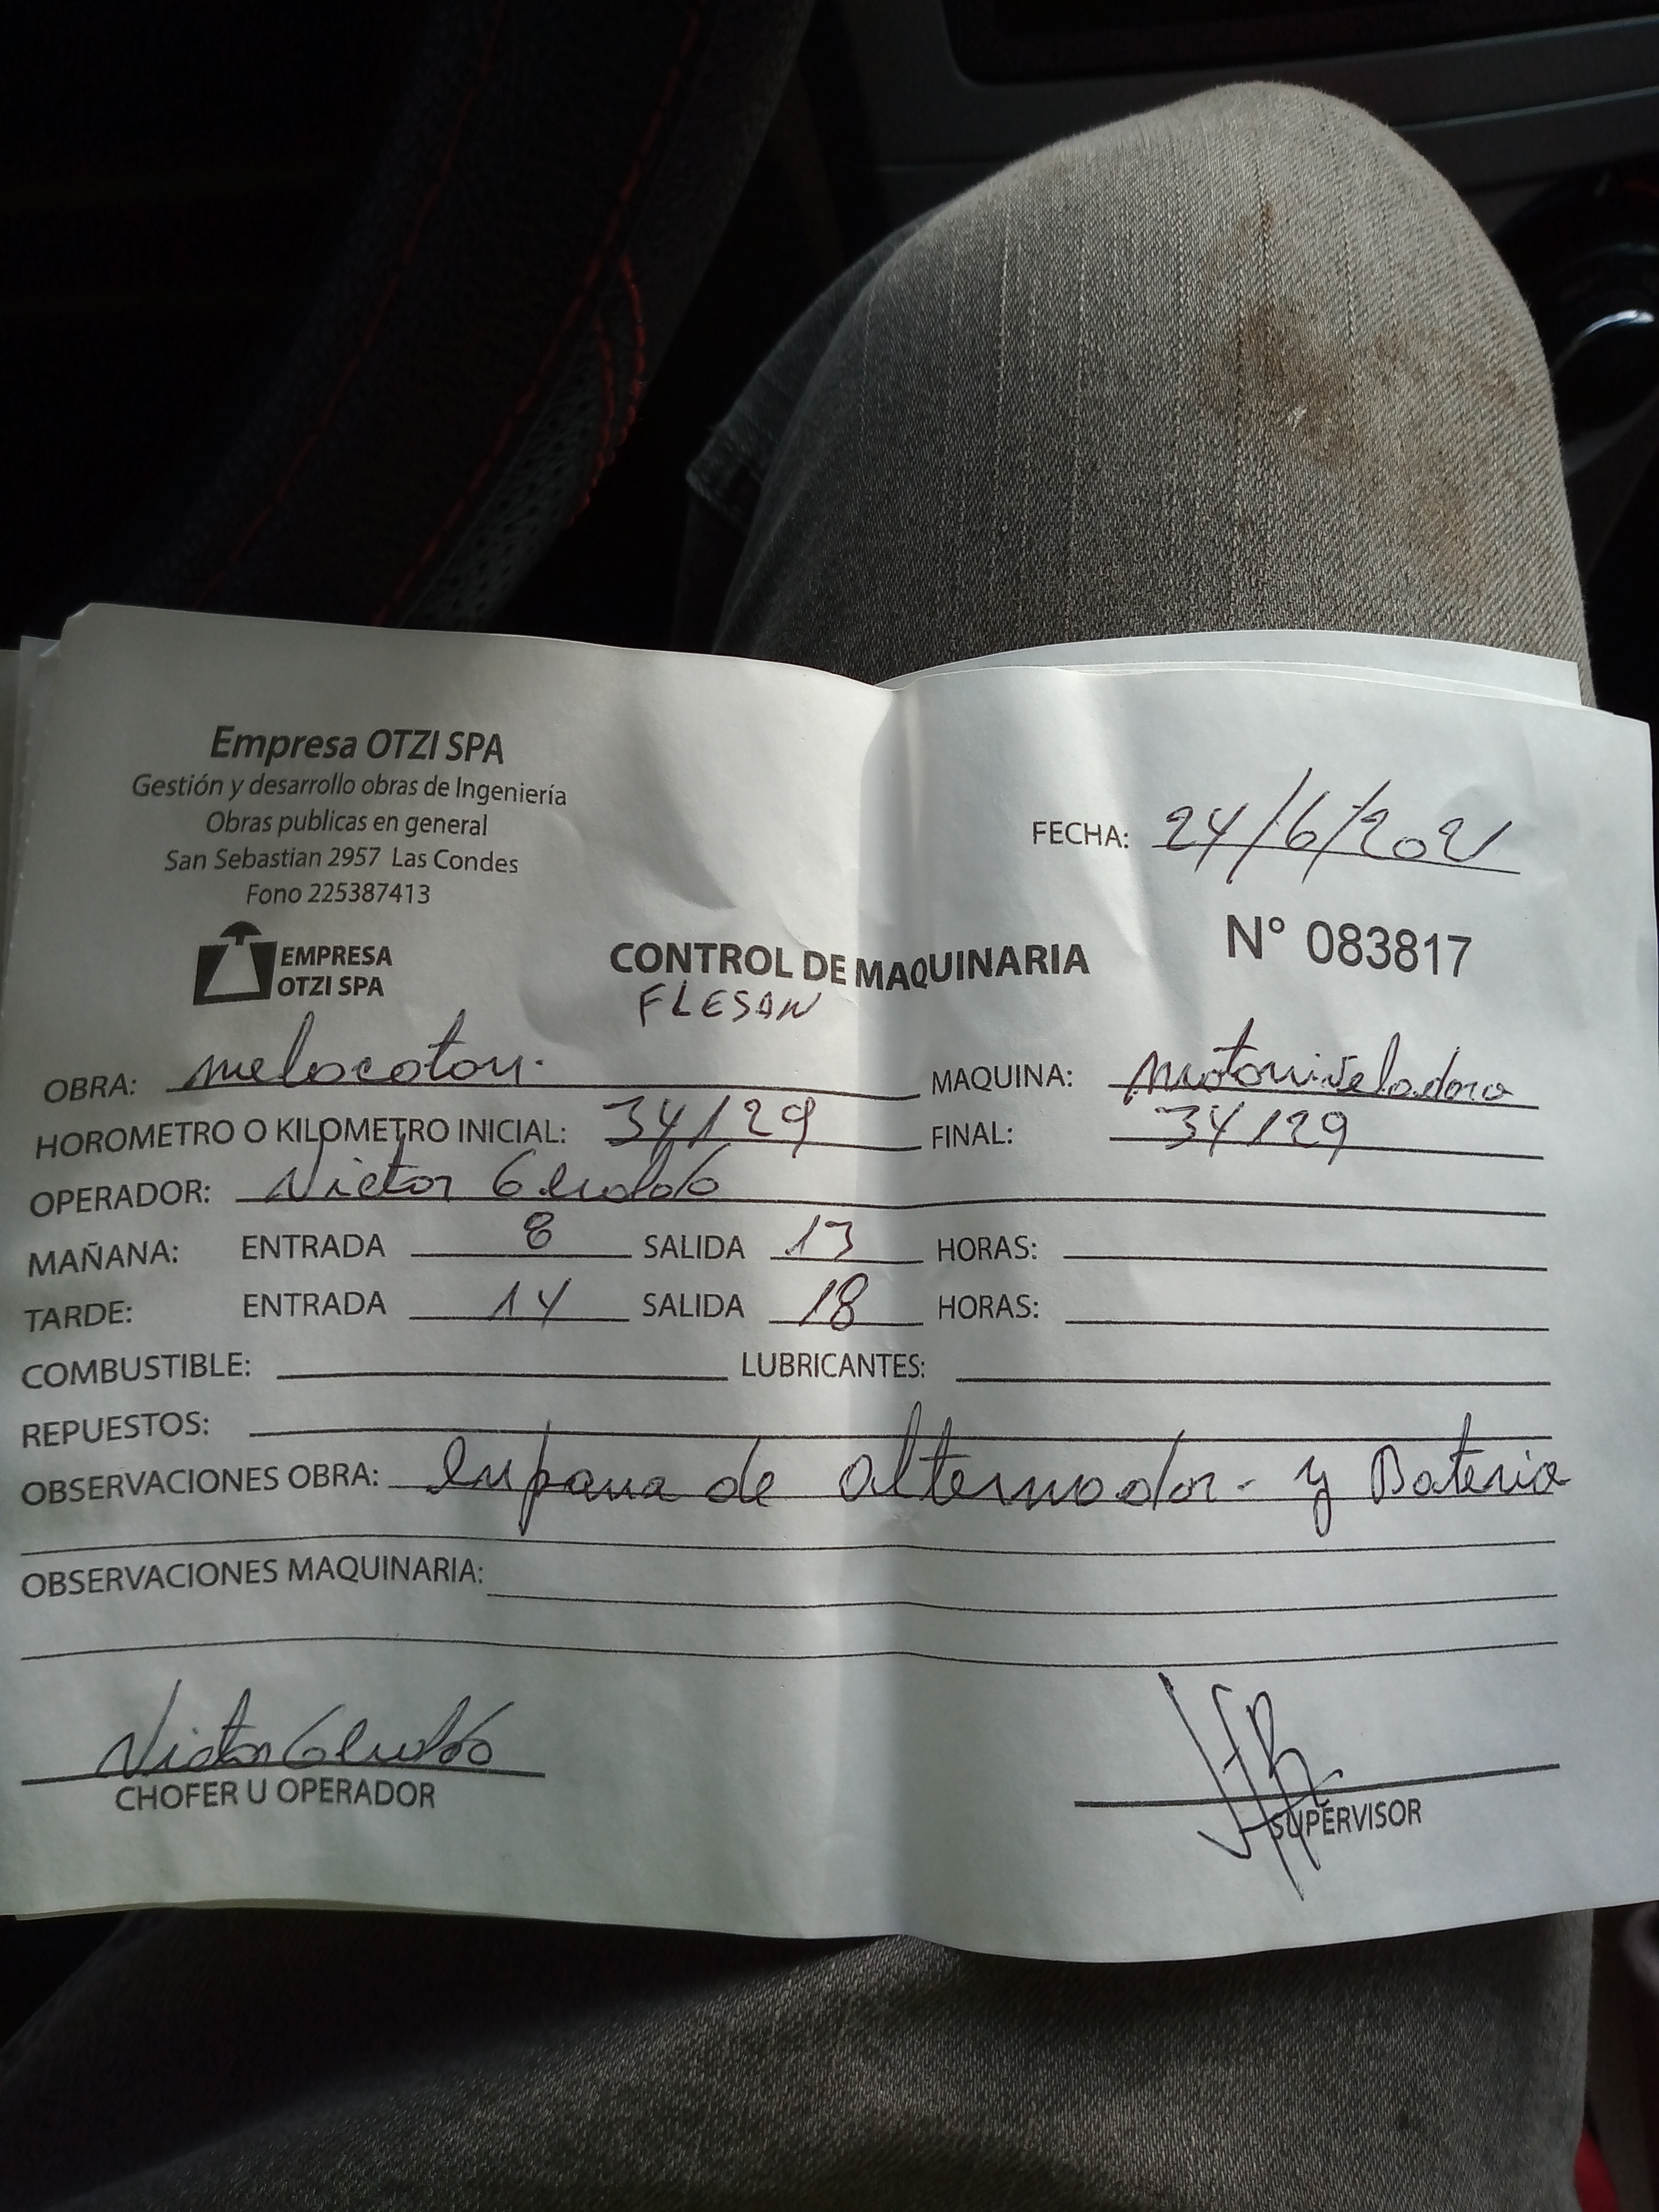 Empresa OTZI SPA
Gestión y desarrollo obras de Ingeniería
Obras publicas en general
San Sebastian 2957 Las Condes
Fono 225387413
EMPRESA
OTZI SPA
FECHA: 24/6/2021
N° 083817
CONTROL DE MAQUINARIA
FLESAN
OBRA: melocoton. MAQUINA: Motoniveladora
HOROMETRO O KILOMETRO INICIAL: 34129 FINAL: 34129
OPERADOR: Victor
MAÑANA: ENTRADA 8 SALIDA 13 HORAS:
TARDE: ENTRADA 14 SALIDA 18 HORAS:
COMBUSTIBLE: LUBRICANTES:
REPUESTOS:
OBSERVACIONES OBRA: en pana de alternador. y Bateria
OBSERVACIONES MAQUINARIA:
Victor
CHOFER U OPERADOR
SUPERVISOR